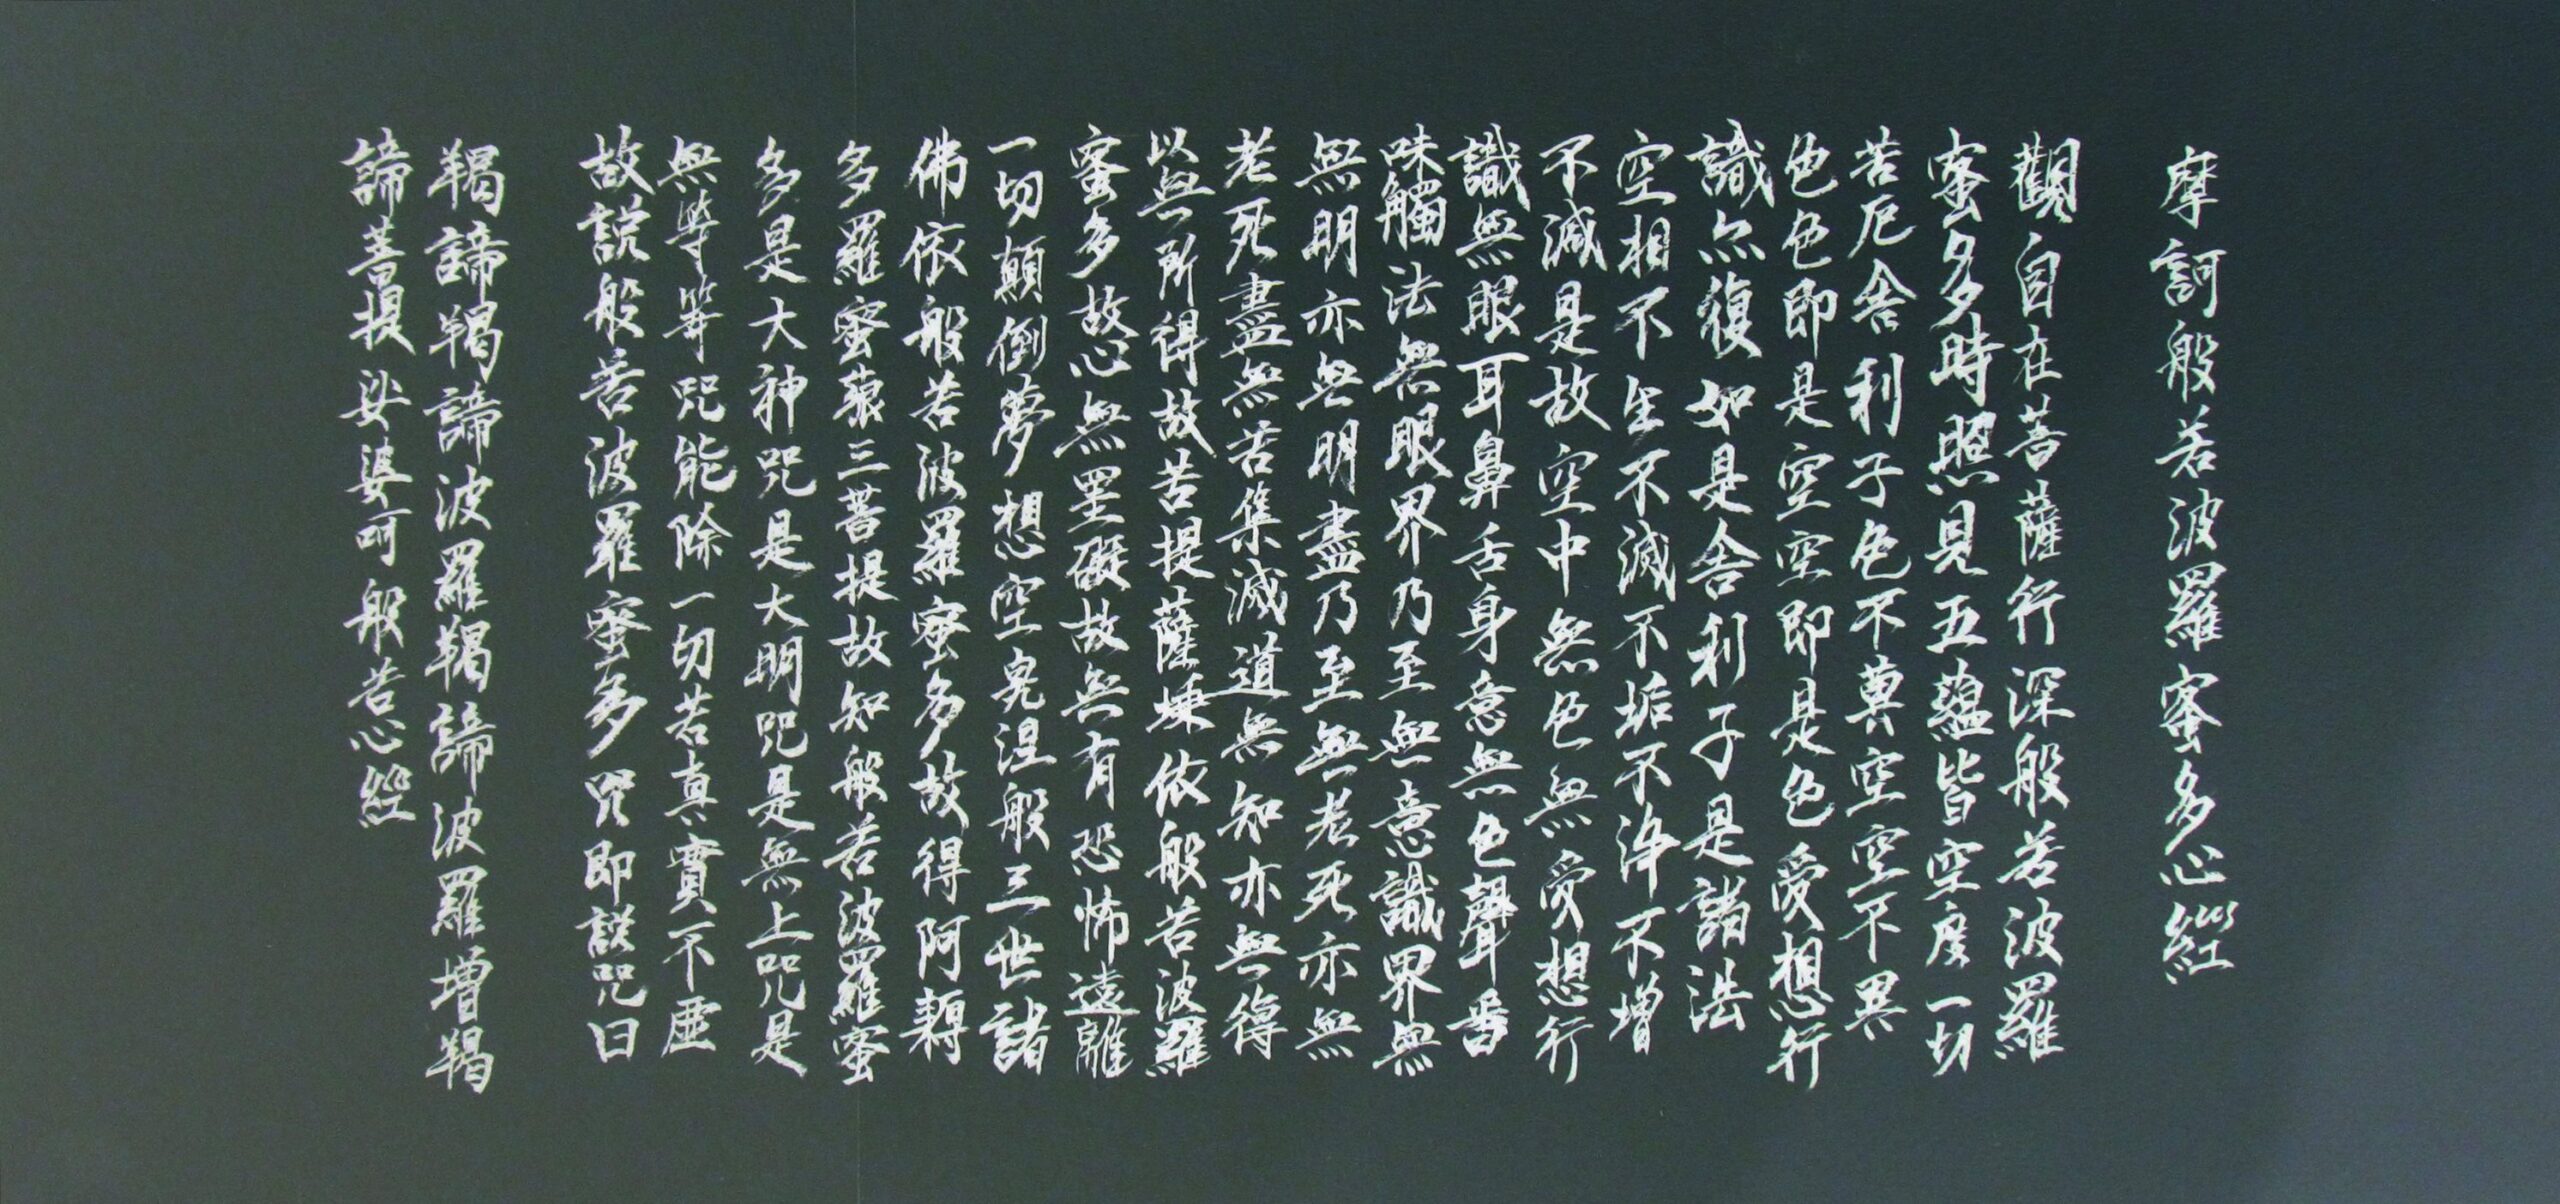 摩訶般若波羅蜜多心經
觀自在菩薩行深般若波羅
蜜多時照見五蘊皆空度一切
苦厄舍利子色不異空空不異
色色即是空空即是色受想行
識亦復如是舍利子是諸法
空相不生不滅不垢不淨不增
不減是故空中無色無受想行
識無眼耳鼻舌身意無色聲香
味觸法無眼界乃至無意識界無
無明亦無明盡乃至無老死亦無
老死盡無苦集滅道無知亦無得
以無所得故菩提薩埵依般若波羅
蜜多故心無罣礙故無有恐怖遠離
一切顛倒夢想空竟涅般三世諸
佛依般若波羅蜜多故得阿耨
多羅蜜藐三菩提故知般若波羅蜜
多是大神咒是大明咒是無上咒是
無等等咒能除一切苦真實不虛
故說般若波羅蜜多咒即說咒曰
羯諦羯諦波羅羯諦波羅增羯
諦菩提娑婆呵般若心經